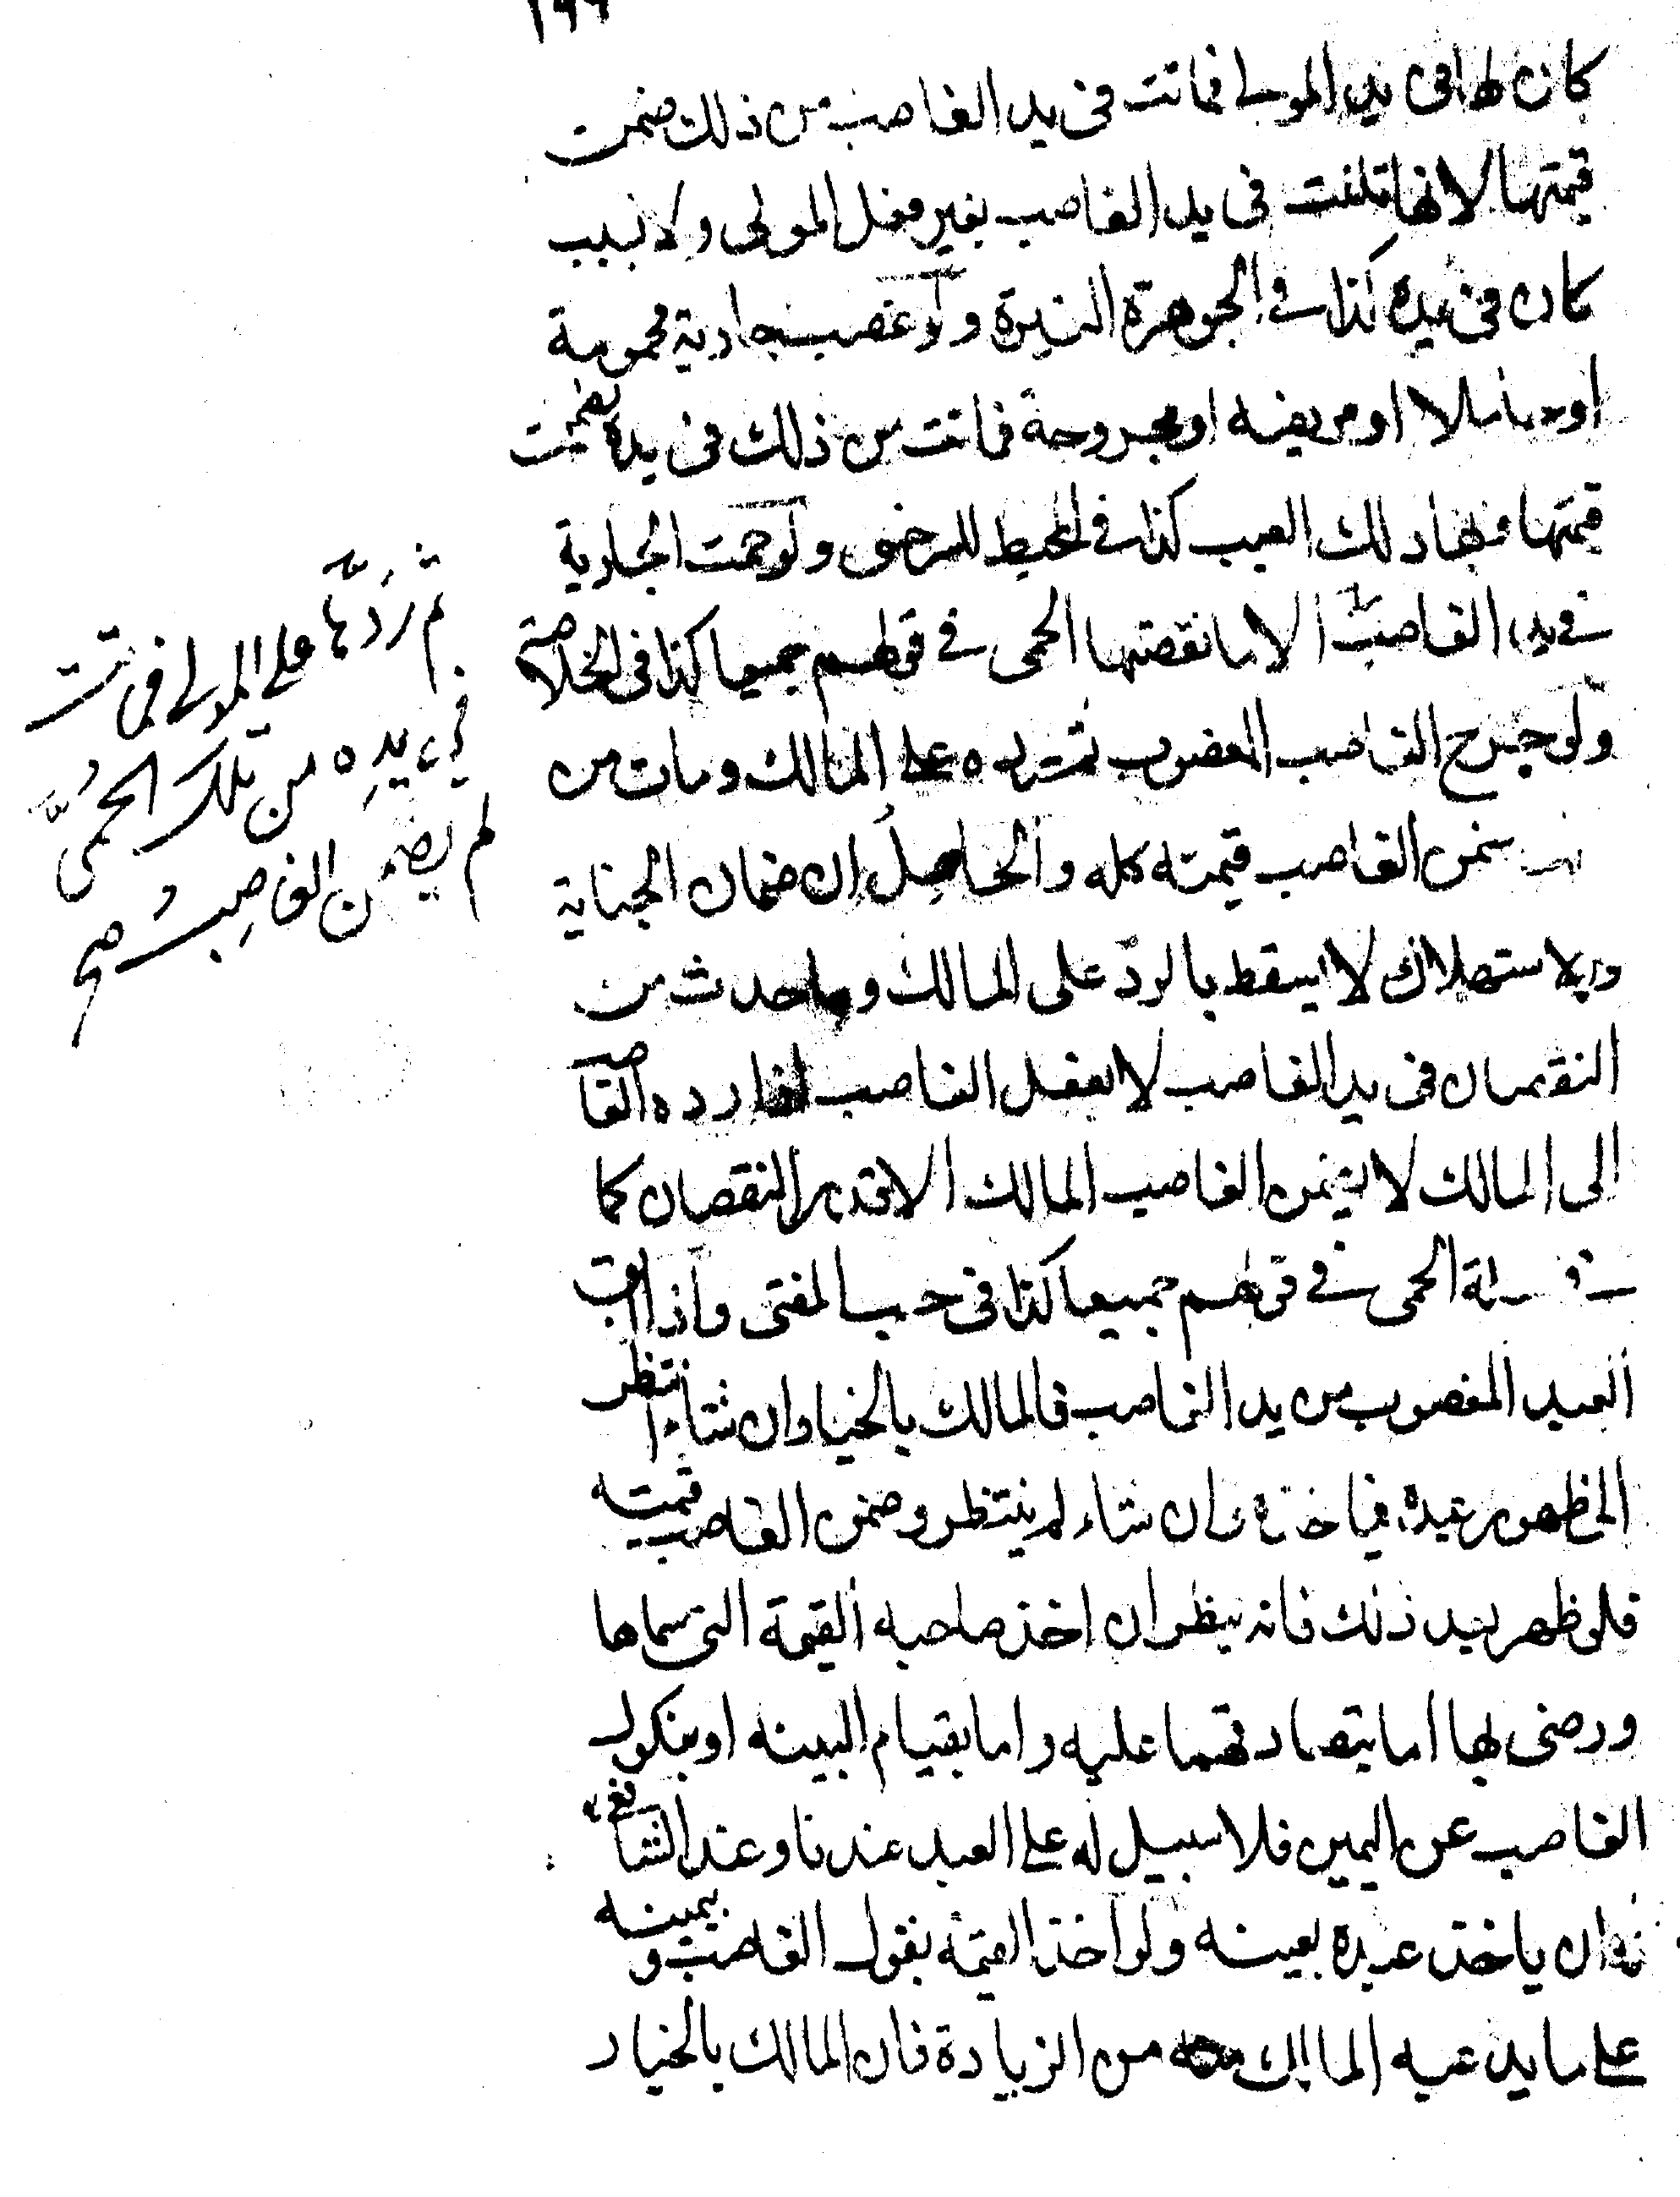 ١٩٩
كان لها فى يد المولى فماتت فى يد الغاصب من ذلك ضمن
قيمتها لانها تلفت فى يد الغاصب بغير فعل المولى ولا بسبب
كان فى يده كذا فى الجوهرة النيرة ولو غصب جارية محمومة
او حبلا او مريضه او مجروحة فماتت من ذلك فى يده يضمن
قيمتها وبها ذلك العيب كذا فى المحيط للسرخسى ولو حمت الجارية
فى يد الغاصب الا ما نقصتها الحمى فى قولهم جميعا كذا فى الخلاصة
ولو جرح الغاصب المغصوب ثم رده على المالك ومات من
ضمن الغاصب قيمته كله والحاصل ان ضمان الجناية
والاستهلاك لا يسقط بالرد على المالك وما حدث من
النقصان فى يد الغاصب لا بفعل الغاصب اذا رده الغاصب
الى المالك لا يضمن الغاصب المالك الا قدر النقصان كما
فى الحمى فى قولهم جميعا كذا فى حسب المفتى واذا ابق
العبد المغصوب من يد الغاصب فالمالك بالخيار ان شاء انتظر
الى ظهور عبده فياخذه وان شاء لم ينتظر وضمن الغاصب قيمته
فلو ظهر بعد ذلك فانه ينظر ان اخذ صاحبه القيمة التى سماها
ورضى بها اما بتصادقهما عليه واما بقيام البينه او بنكول
الغاصب عن اليمين فلا سبيل له على العبد عندنا وعند الشافعى
له ان ياخذ عبده بعينه ولو اخذ القيمة بقول الغاصب و بيمينه
على ما يدعيه المالك من الزيادة فان المالك بالخيار
ثم ردها على المولى فماتت
فى يده من تلك الحمى
لم يضمن الغاصب صح